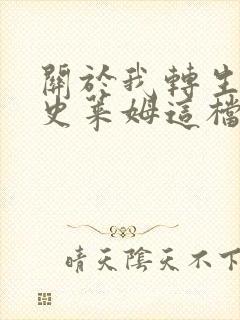 關於我轉生
史萊姆這檔
晴天陰天不下